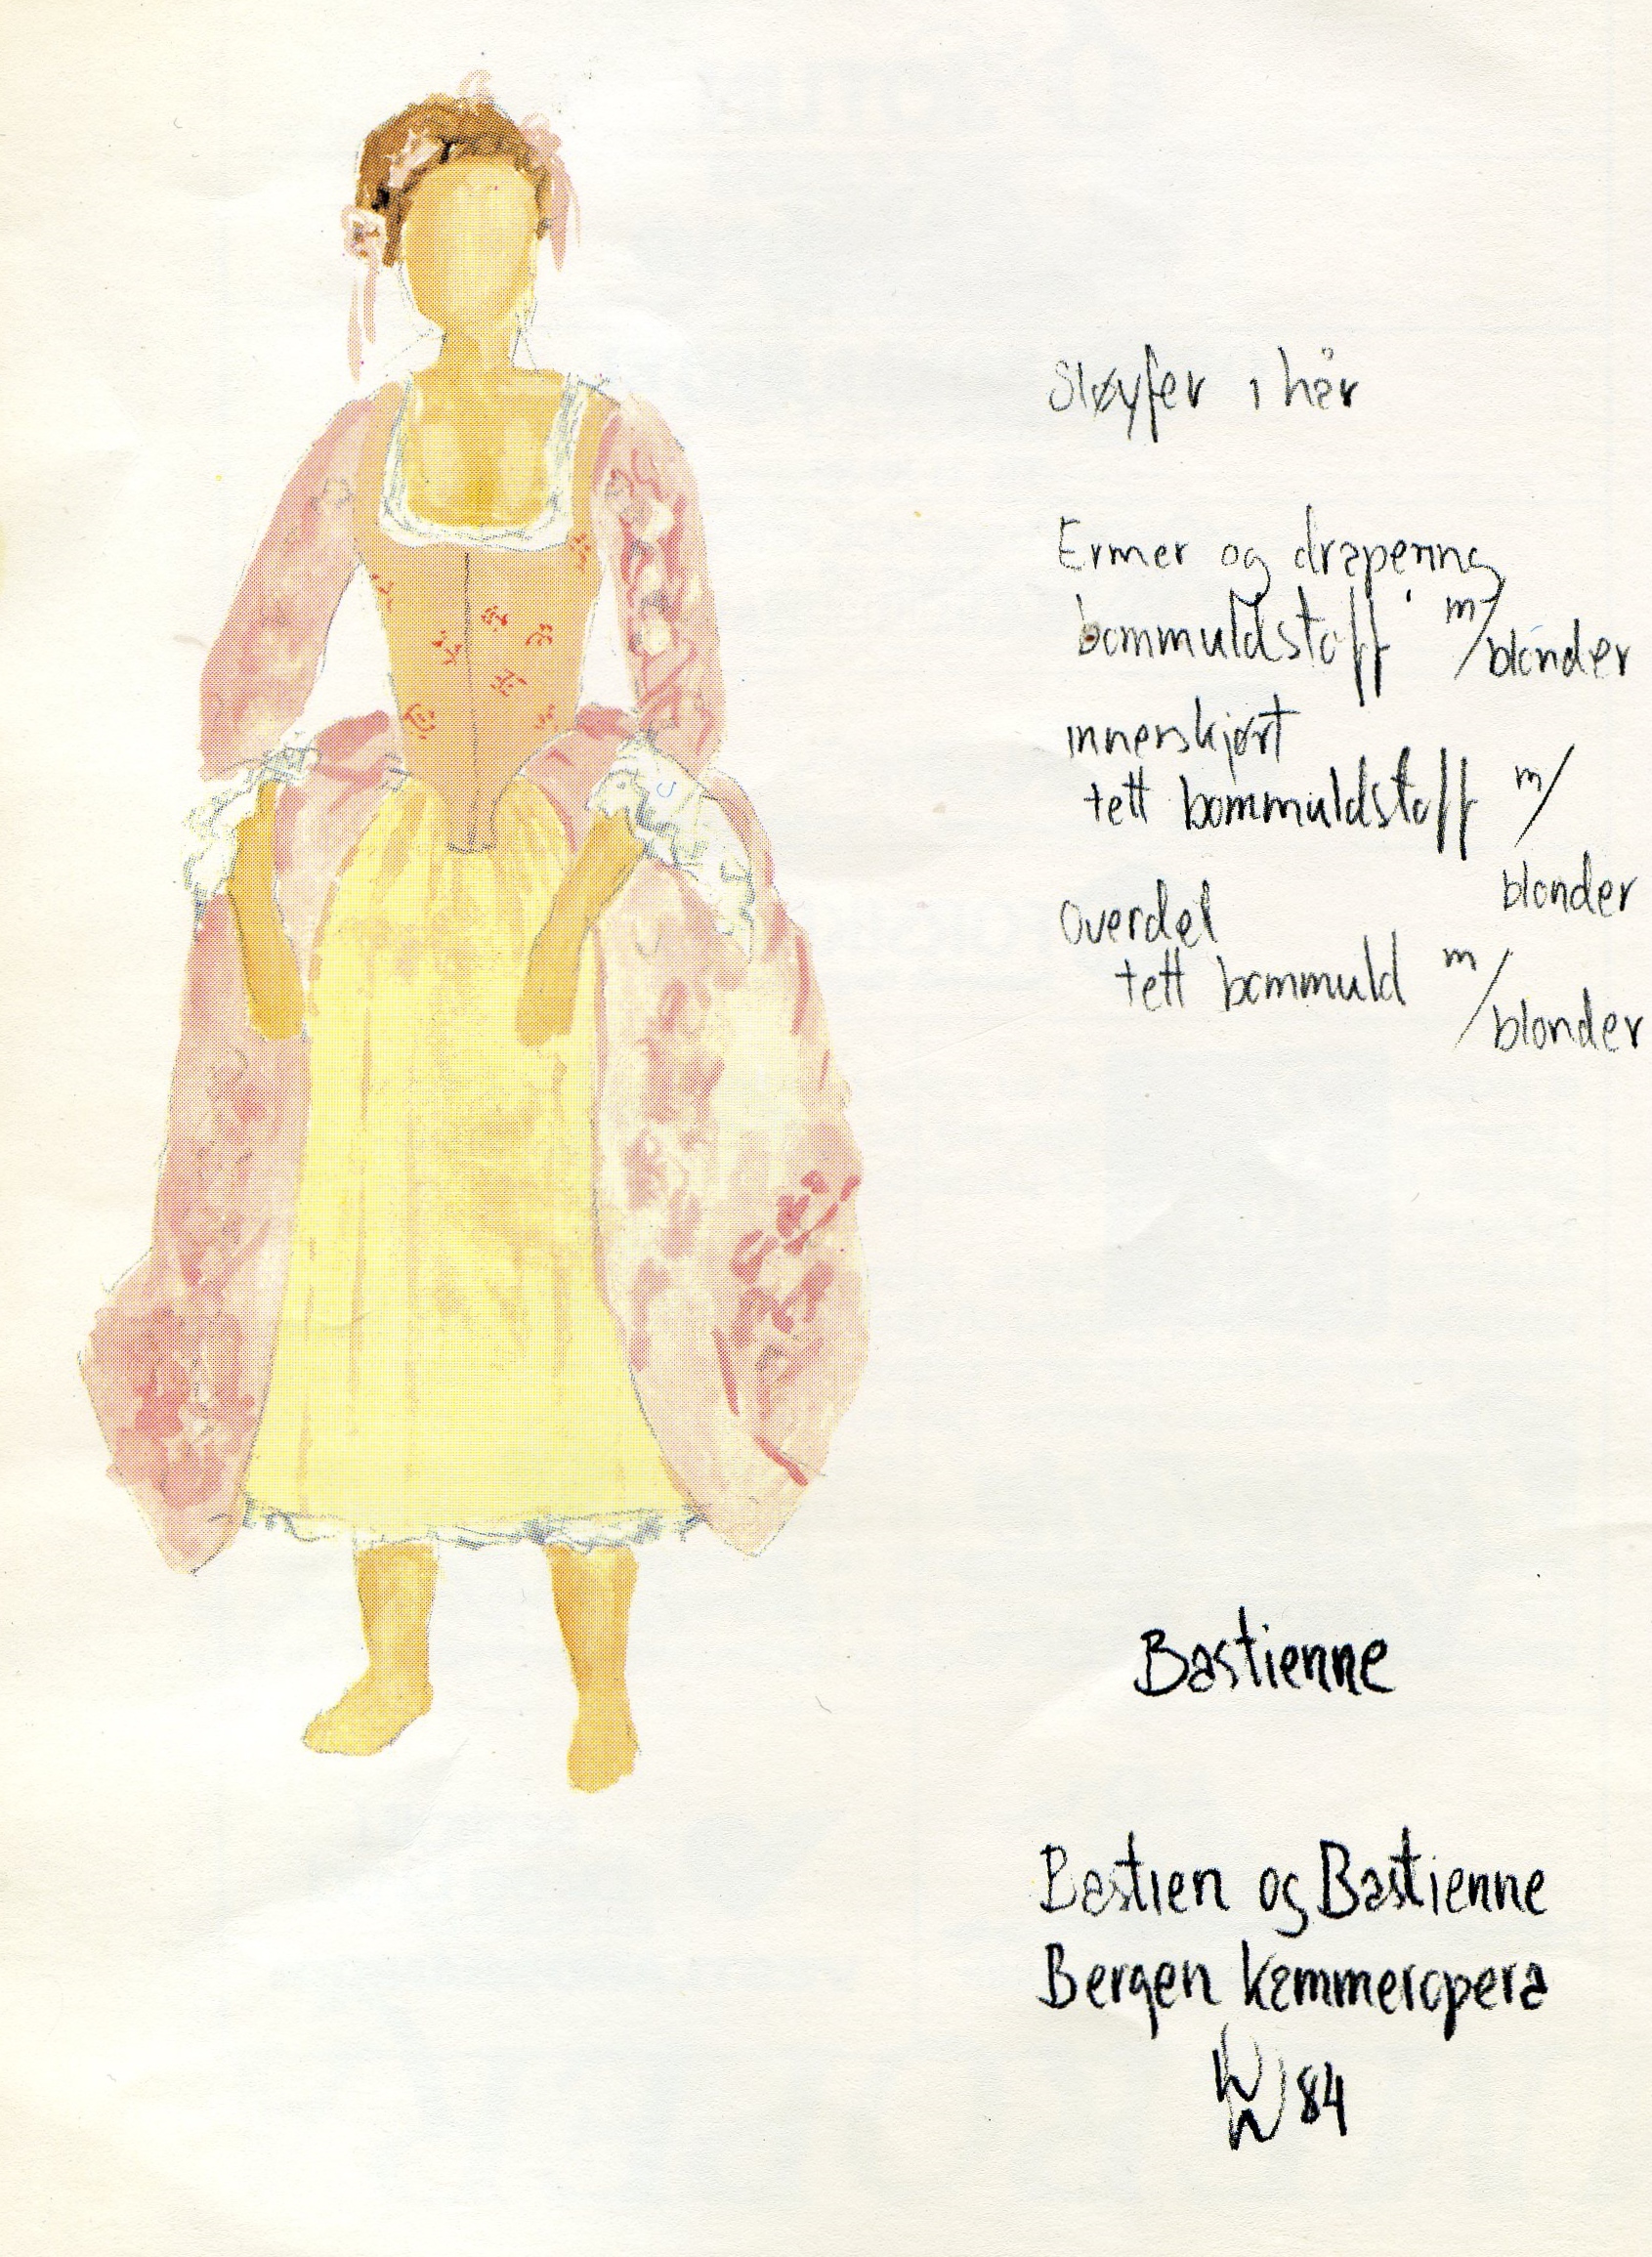 Sløyfer i hår
Ermer og drapering
bommuldstoff m/blonder
innerskjørt
tett bommuldstoff m/
blonder
overdel
tett bommuld m/
blonder
Bastienne
Bastien og Bastienne
Bergen Kammeropera
84